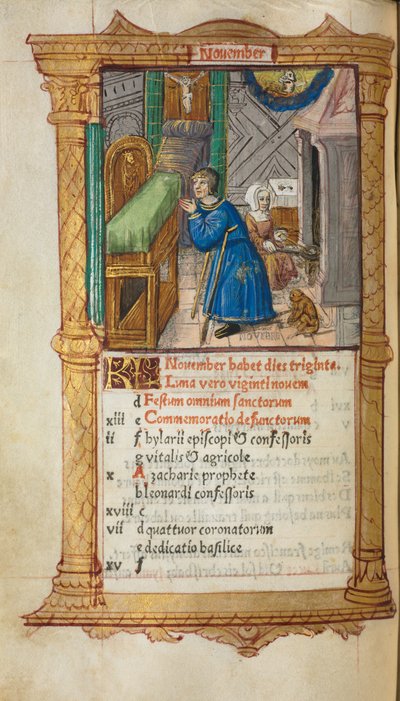 Nouember
NOVEMBRE
KL Nouember habet dies triginta.
Luna vero viginti nouem
d Festum omnium sanctorum
xiii e Commemoratio defunctorum
ii f hylarii episcopi & confessoris
g vitalis & agricole
x A zacharie prophete
b leonardi confessoris
xviii c
vii d quattuor coronatorum
e dedicatio basilice
xv f